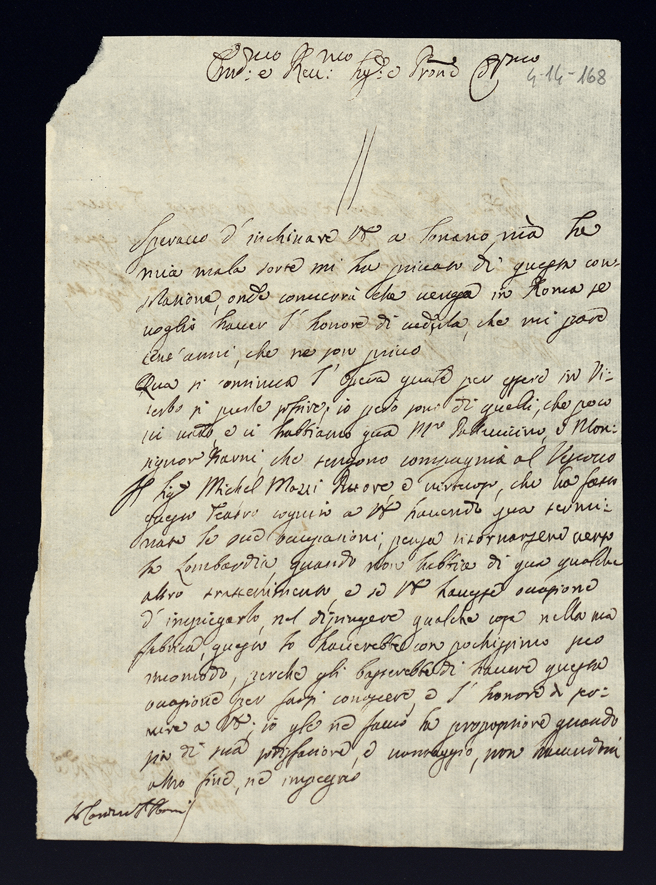 Em:mo e Rev:mo Sig:r e Pron Col:mo
4-14-168
Speravo d'inchinare VE a mà la
mia mala sorte mi ha privato di questa con=
solatione, onde converrà che venga in Roma se
voglio haver l'honore di vederla, che mi pare
cent'anni, che ne son privo
Qua si continua l'opera quale per essere in Vi=
terbo si puole io però sono di quelli, che poco
ci vado, e ci habbiamo qua Mr Pallavicino, e Mon=
signor che tengono compagnia al Vescovo
Il Sig:r Michel Pittore e virtuoso, che ha fatto
questo Teatro cognito a VE havendo qua termi=
nate le sue occasioni, pensa ritornarsene verso
la Lombardia quando non habbia di qua qualche
altro trattenimento e se VE havesse occasione
d'impiegarlo, nel dipingere qualche cosa nella sua
fabrica, questo lo haverebbe con pochissimo suo
incomodo, perche gli basterebbe di havere questa
occasione per farsi conoscere, e l'honore di ser=
vire a VE; io glie ne faccio la propositione quando
sia di sua sodisfatione, e vantaggio, non havendoci
altro fine, ne impegno